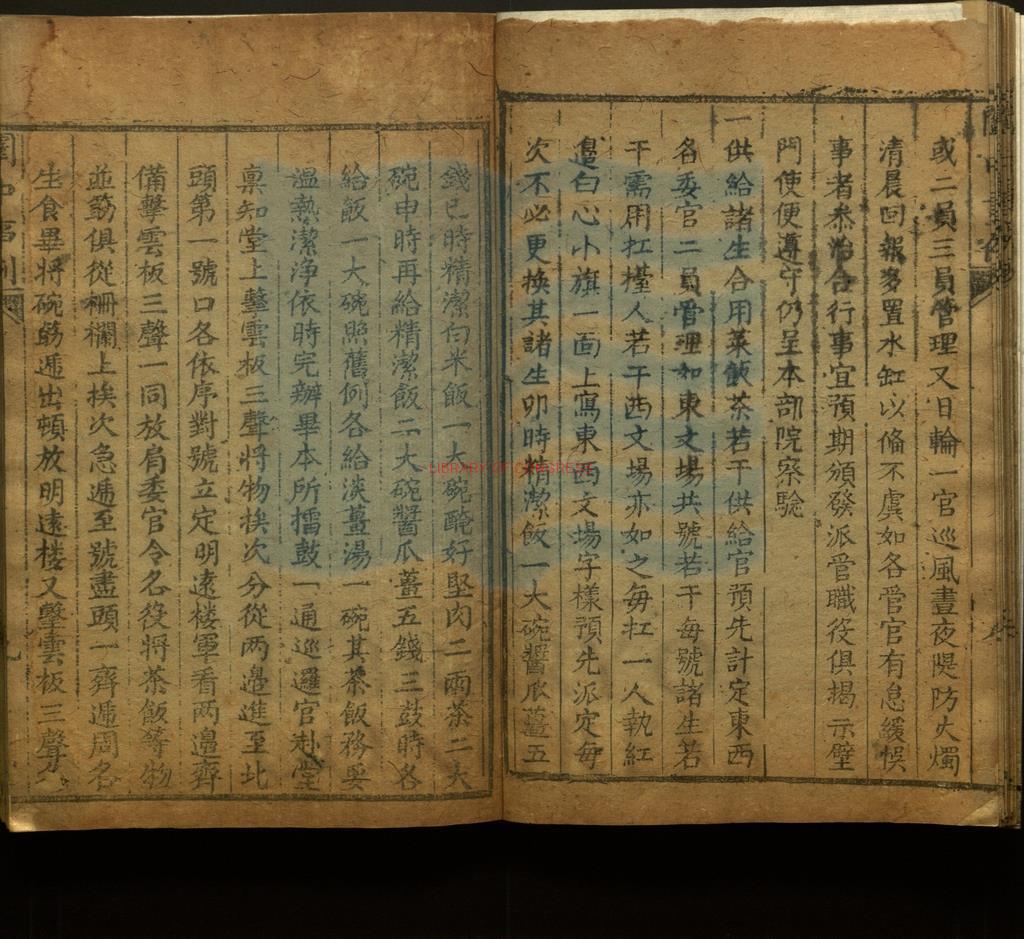 或二員三員管理又日輪一官巡風晝夜隄防火燭
清晨回報多置水缸以備不虞如各管官有怠緩悞
事者叅治合行事宜預期頒發派管職役俱揭示壁
門使便遵守仍呈本部院察騐
一供給諸生合用菜飯茶若干供給官預先計定東西
各委官二員管理如東文場共號若干每號諸生若
干需用扛檯人若干西文場亦如之每扛一人執紅
邊白心小旗一面上寫東西文場字樣預先派定每
次不必更換其諸生卯時精潔飯一大碗醬瓜薑五
錢巳時精潔白米飯一大碗醃好堅肉二兩茶二大
碗申時再給精潔飯二大碗醬瓜薑五錢三鼓時各
給飯一大碗照舊例各給淡薑湯一碗其茶飯務要
溫熱潔淨依時完辦畢本所擂鼓一通巡邏官赴堂
稟知堂上擊雲板三聲將物挨次分從两邉進至北
頭第一號口各依序對號立定明遠楼軍看两邉齊
備擊雲板三聲一同放肩委官令各役將茶飯等物
並筯俱從柵欄上挨次急遞至號盡頭一齊遞周各
生食畢將碗筯遞出頓放明遠楼又擊雲板三聲分
LIBRARY OF CONGRESS